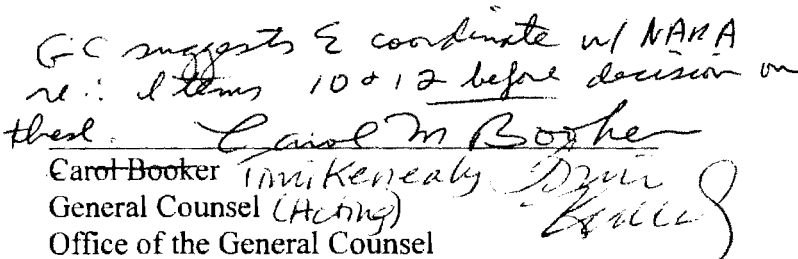 GC suggests & coordinate w/ NARA
re: Items 10 & 12 before decision on
these. Carol M Booker
Carol Booker Timi Kenealy
General Counsel (Acting)
Office of the General Counsel